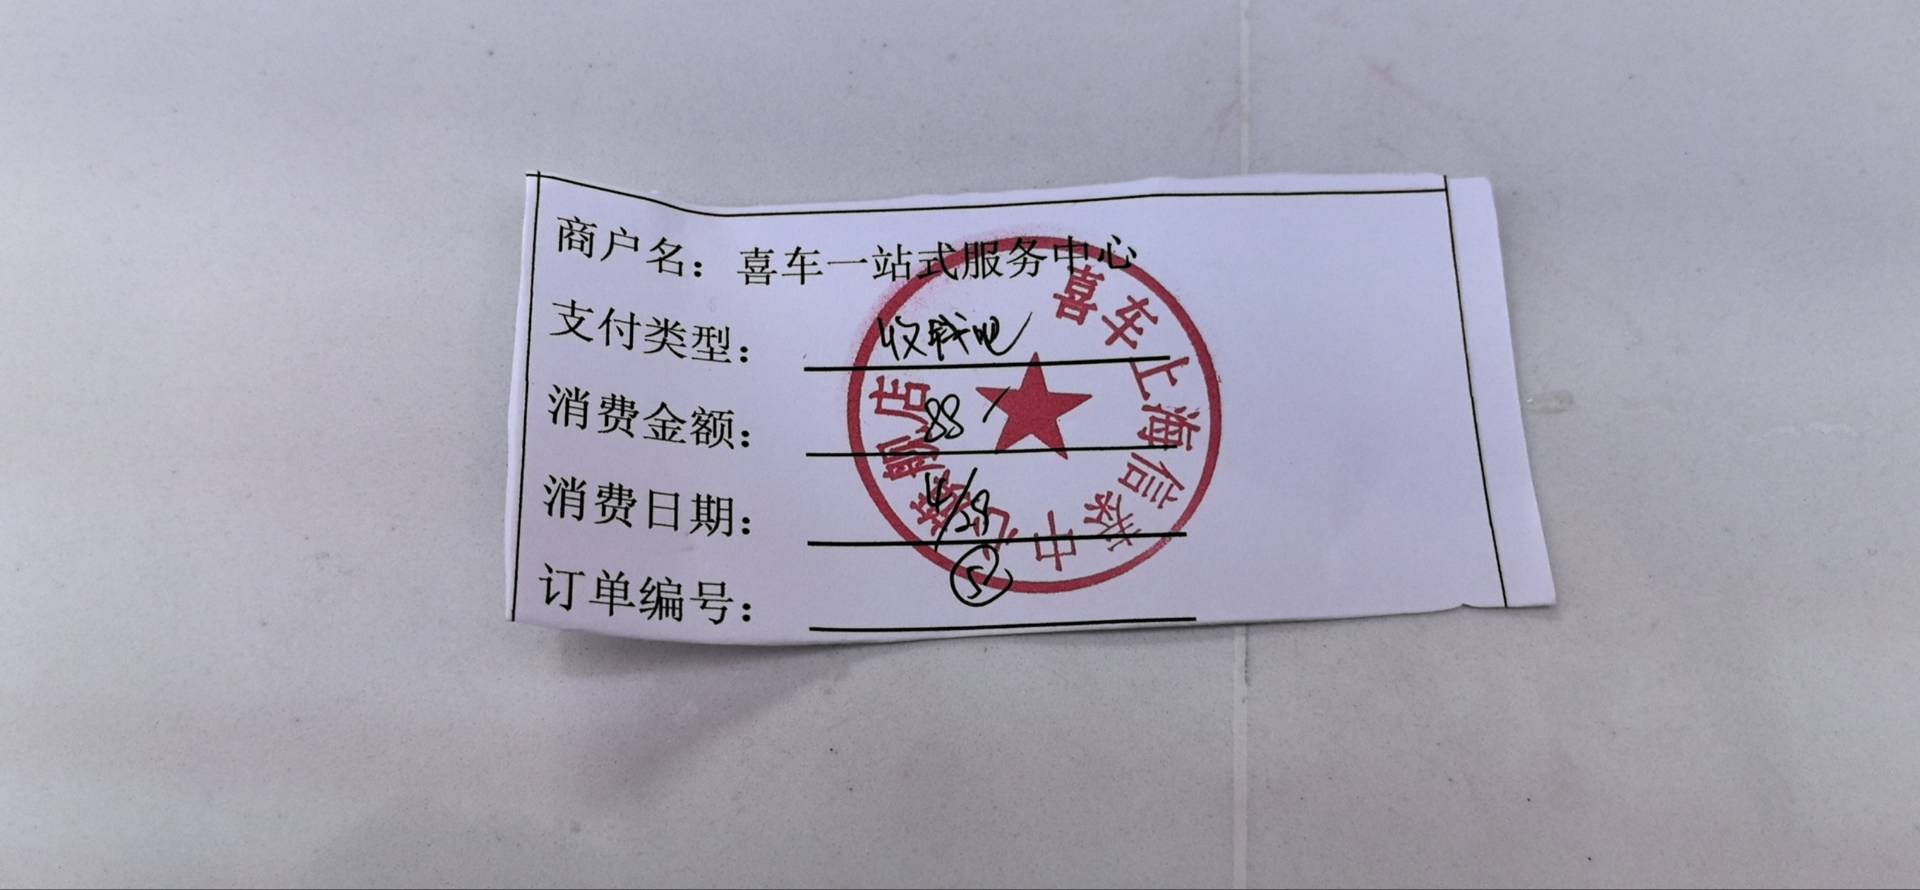 商户名：喜车一站式服务中心
支付类型：收钱吧
消费金额：88
消费日期：4/28
订单编号：⑤
喜车上海信泰中心旗舰店